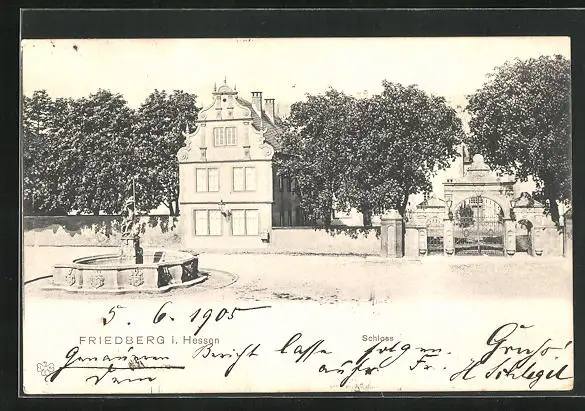 5. 6. 1905
FRIEDBERG i. Hessen
Schloss
Genaueren Bericht lasse folgen. Gruss!
dem auf Fr. H Schlegel